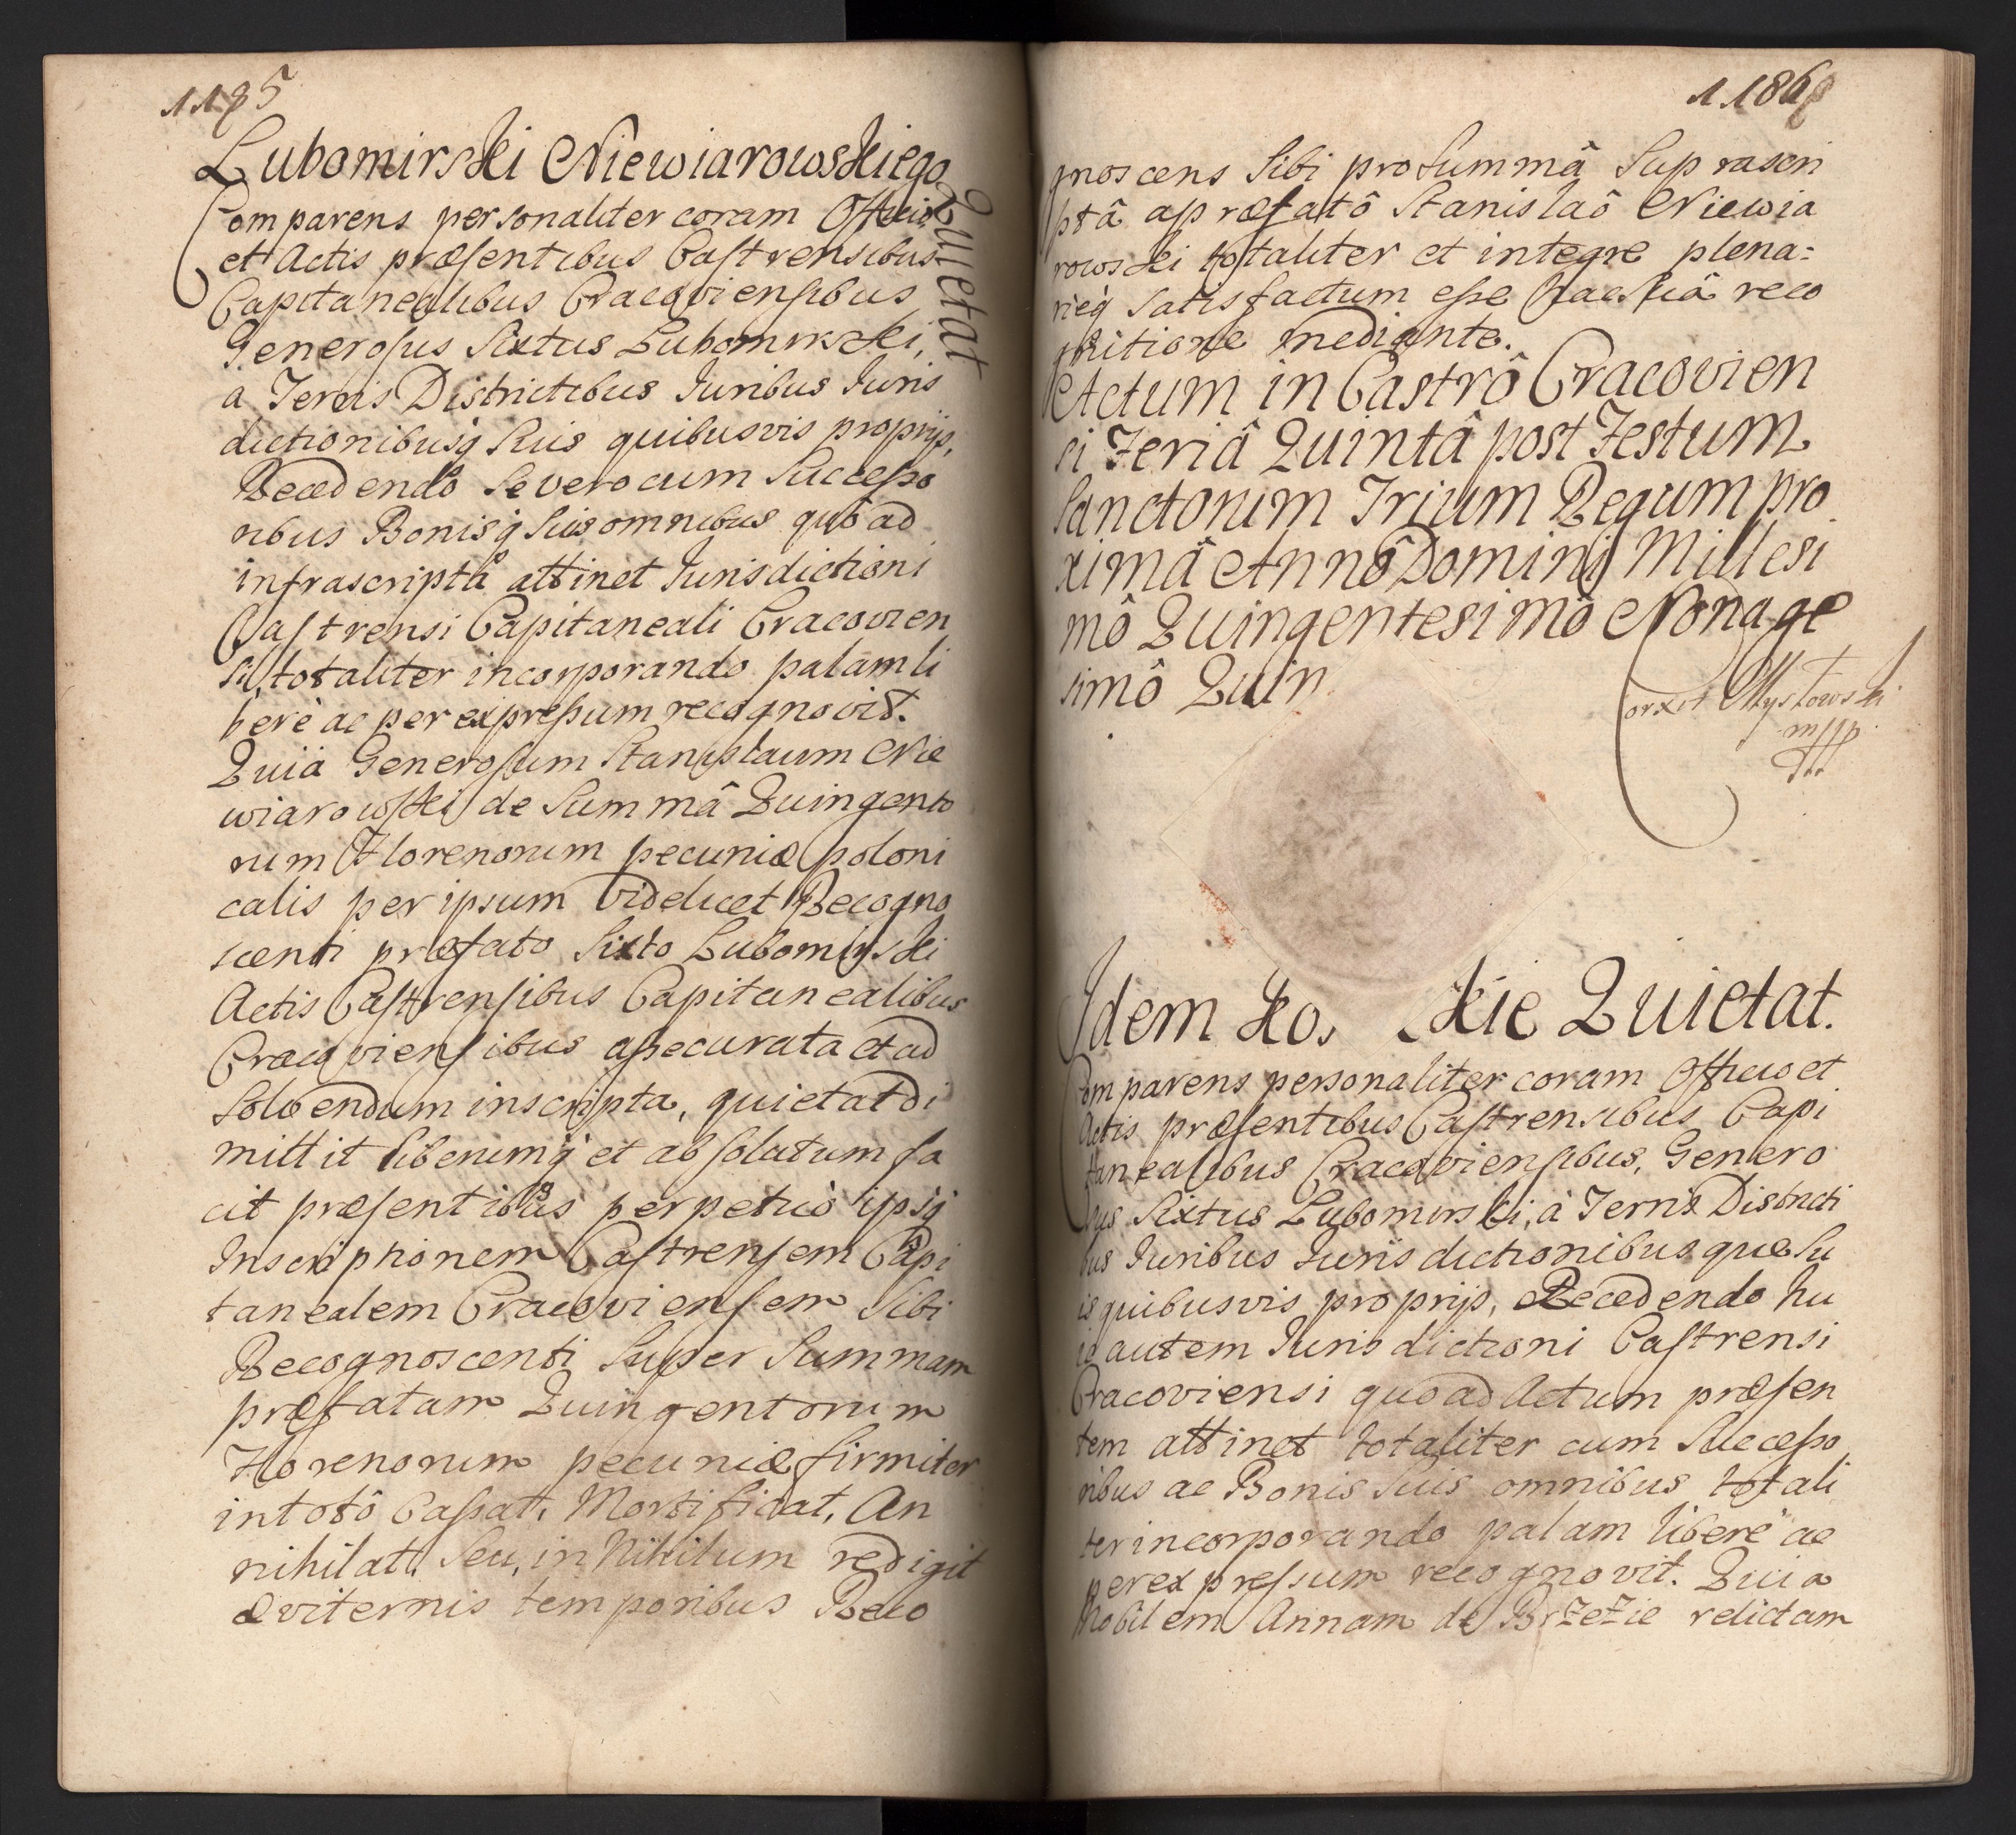 1185
Lubomirski Niewiarowskiego
Quietat
Comparens personaliter coram Officio
et Actis præsentibus Castrensibus
Capitanealibus Cracoviensibus
Generosus Sixtus Lubomirski,
a Terris Districtibus Juribus Juris
dictionibusq suis quibusvis proprijs,
Recedendo se vero cum Successo
ribus Bonisq suis omnibus quô ad
infrascripta attinet Jurisdictioni
Castrensi Capitaneali Cracovien
si, totaliter incorporando palam li
berè ac per expressum recognovit.
Quià Generosum Stanislaum Nie
wiarowski de Summâ Quingento
rum Florenorum pecuniæ poloni
calis per ipsum videlicet Recogno
scenti præfato Sixto Lubomirski
Actis Castrensibus Capitanealibus
Cracoviensibus assecurata et ad
Solvendum inscripta, quietat di
mittit liberumq et absolutum fa
cit præsentibus perpetuò ipsq
Inscriptionem Castrensem Capi
tanealem Cracoviensem Sibi
Recognoscenti Super Summam
præfatam Quingentorum
Florenorum pecuniæ firmiter
in totô Cassat, Mortificat, An
nihilat, Seu, in Nihilum redigit
æviternis temporibus Reco
1186
gnoscens Sibi pro Summâ Suprascri
ptâ a præfatô Stanislaô Niewia
rowski totaliter et integre plena=
rieq satisfactum esse
gnitione mediante.
Actum in Castrô Cracovien
si Feriâ Quintâ post Festum
Sanctorum Trium Regum pro
ximâ Annô Domini Millesi
mô Quingentesimô Nonage
simô Quin
Mystowski
mpp
Idem Ko kie Quietat.
Comparens personaliter coram Officio et
Actis præsentibus Castrensibus Capi
tanealibus Cracoviensibus, Genero
sus Sixtus Lubomirski, à Terris Districti
bus Juribus Jurisdictionibusque Su
is quibusvis proprijs, Recedendo hu
ic autem Jurisdictioni Castrensi
Cracoviensi quo ad Actum præsen
tem attinet totaliter cum Successo
ribus ac Bonis Suis omnibus totali
ter incorporando palam liberè ac
per expressum recognovit. Quia
Nobilem Annam de Brzezie relictam